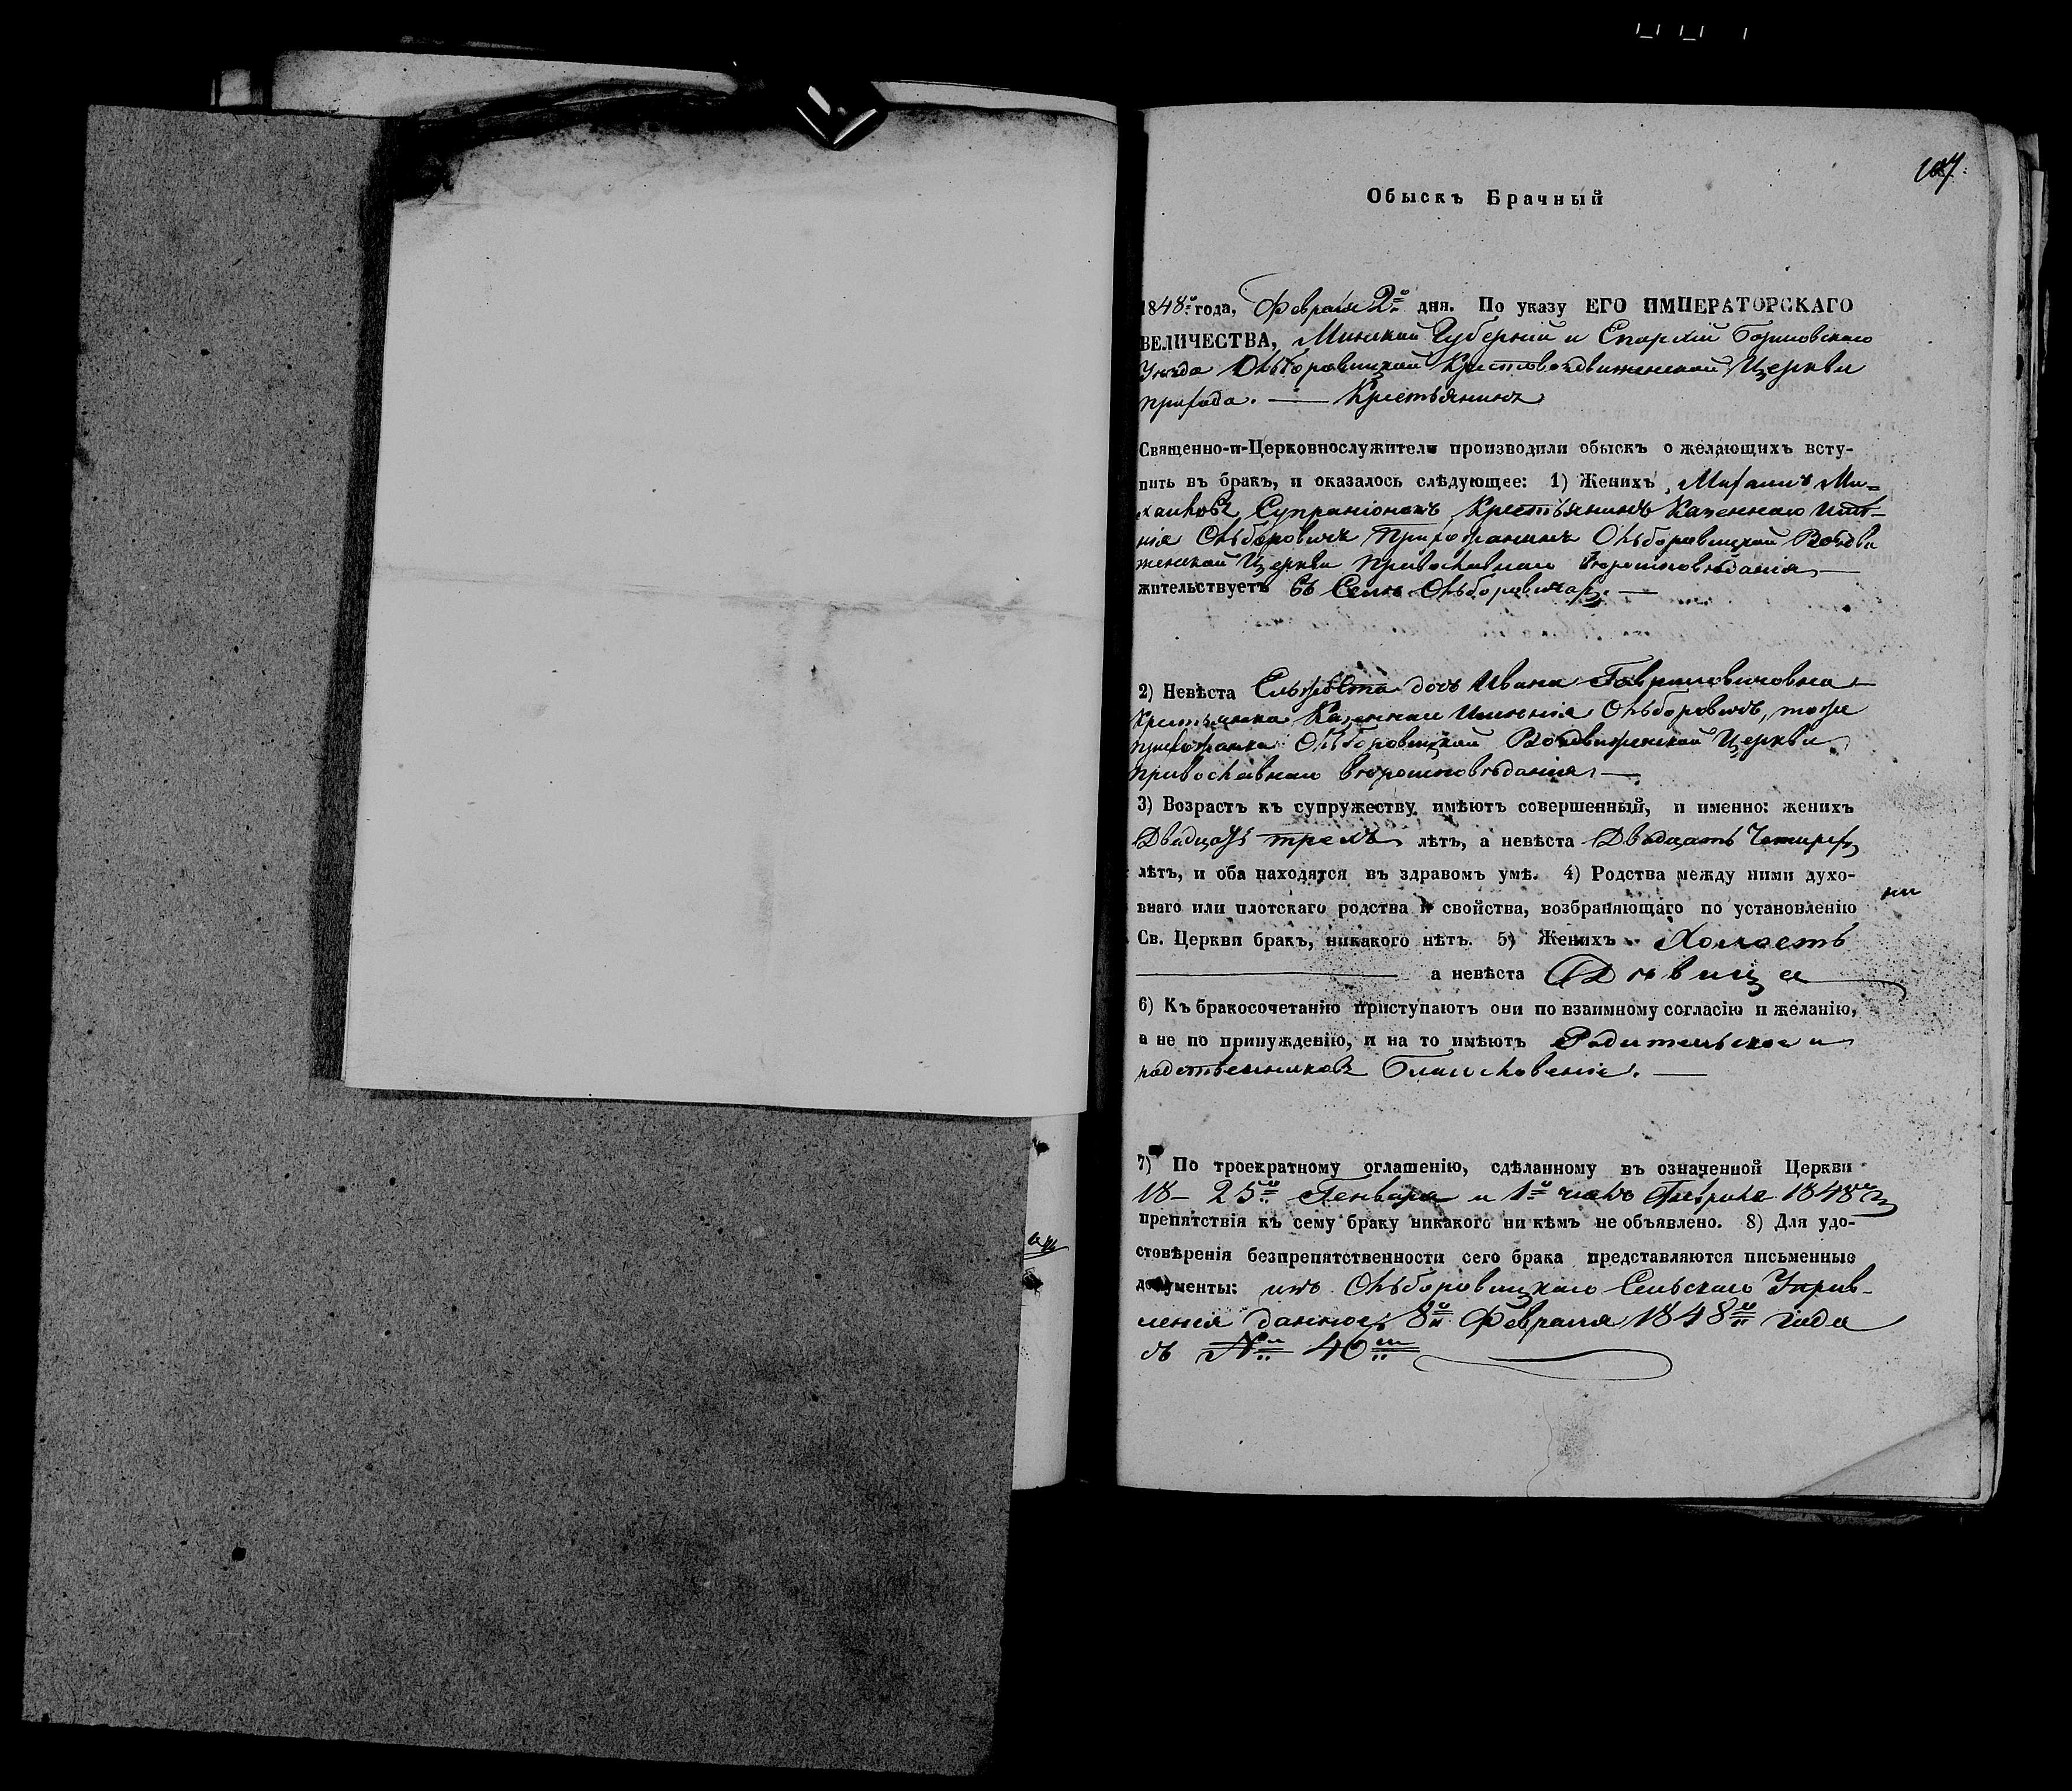 107.
Обыскъ Брачный
1848го года, Февраля 2го дня. По указу ЕГО ИМПЕРАТОРСКАГО
ВЕЛИЧЕСТВА, Минской Губерніи и Епархіи Борисовскаго
Уезда Крестовоздвиженской Церкви
прихода. — Крестьянинъ
Священно-и-Церковнослужители производили обыскъ о желающихъ всту-
пить въ бракъ, и оказалось слѣдующее: 1) Женихъ Михаилъ Ми-
хаиловъ Крестьянинъ Казеннаго Имѣ-
нія Прихожанинъ Воздви
женской Церкви православнаго вѣроисповѣданія —
жительствуетъ въ Селѣ
2) Невѣста Ельжбета дочь Ивана Гавриловичовна
Крестьянка Казеннаго Имѣнія тоже
прихожанка Воздвиженской Церкви
православнаго вѣроисповѣданія —
3) Возрастъ къ супружеству имѣютъ совершенный, и именно: женихъ
Двадцать трехъ лѣтъ, а невѣста Двадцать Четырехъ
лѣтъ, и оба находятся въ здравомъ умѣ. 4) Родства между ними духо-
внаго или плотскаго родства и свойства, возбраняющаго по установленію
ни
Св. Церкви бракъ, никакого нѣтъ. 5) Женихъ Холостъ
а невѣста Дѣвица
6) Къ бракосочетанію приступаютъ они по взаимному согласію и желанію,
а не по принужденію, и на то имѣютъ Родительское и
родственниковъ Благословеніе. —
7) По троекратному оглашенію, сдѣланному въ означенной Церкви
18 – 25го Генваря и 1го числъ Февраля 1848го
препятствія къ сему браку никакого ни кѣмъ не объявлено. 8) Для удо-
стовѣренія безпрепятственности сего брака представляются письменные
документы: изъ Сельскаго Управ-
ленія данное 8го Февраля 1848го года
съ №м 40м